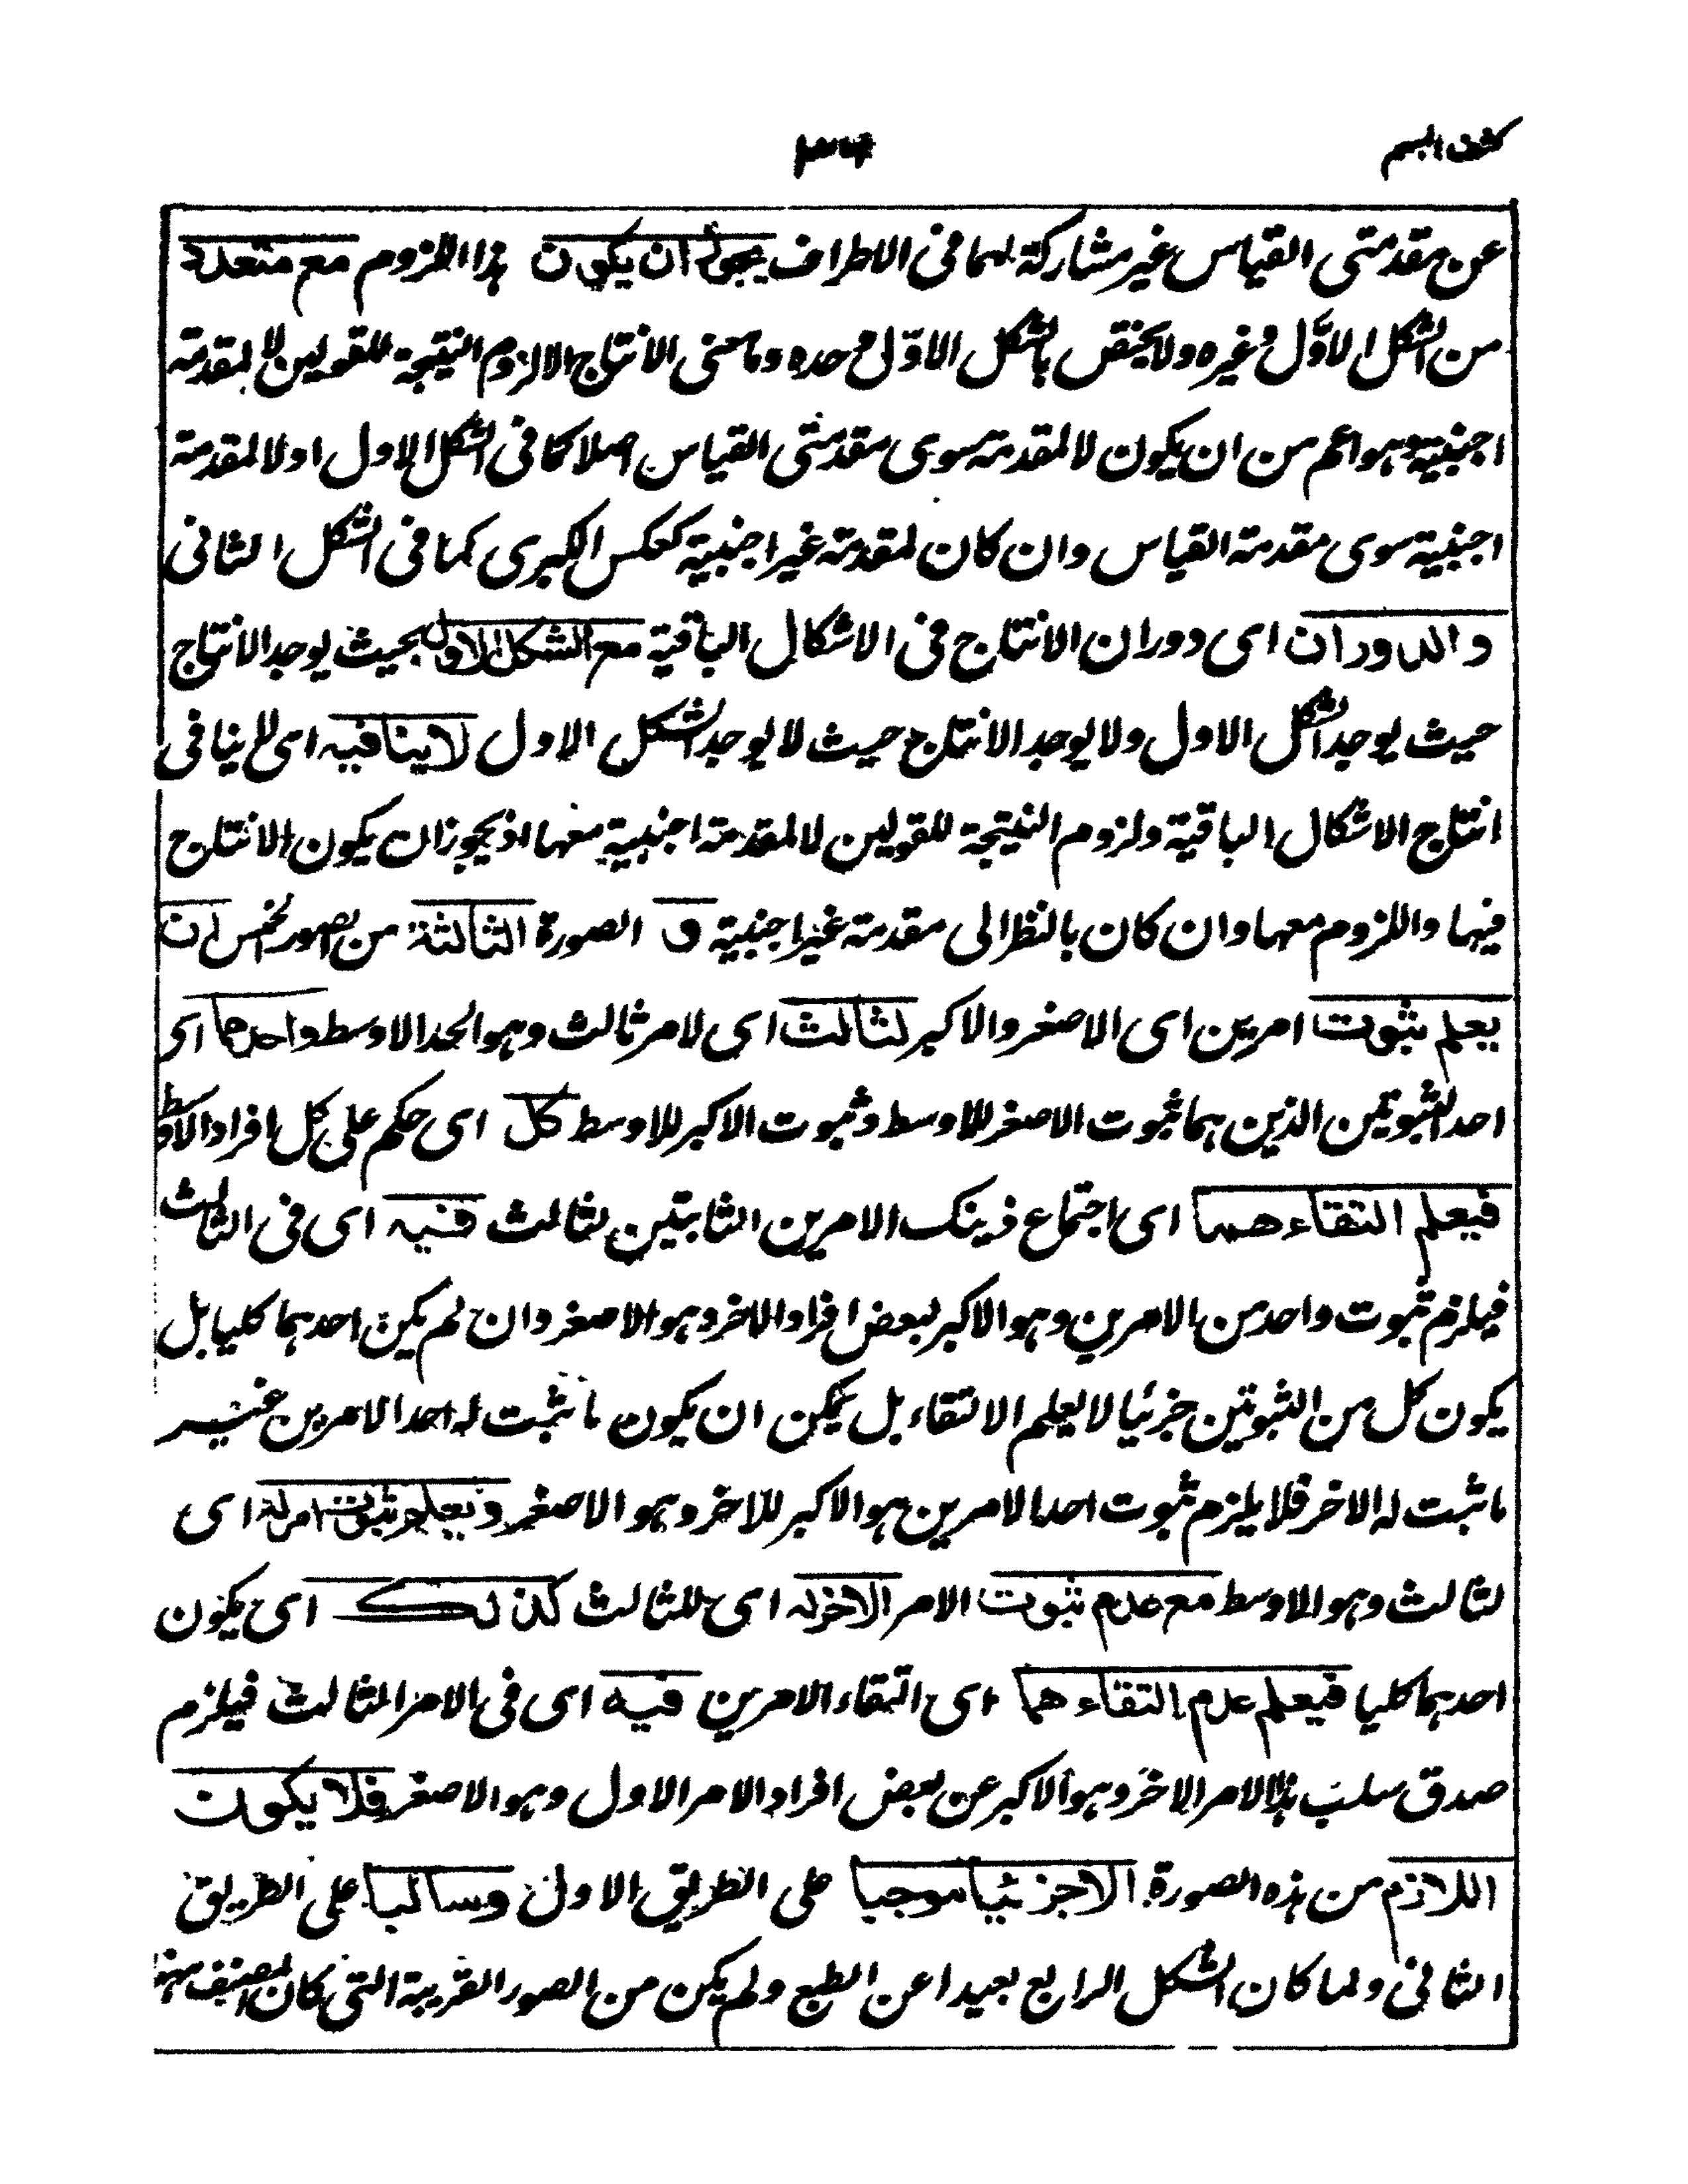 كشف المبهم
عن مقدمتى القياس غير مشاركة لهما فى الاطراف يجوز ان يكون هذا اللزوم مع متعدد
من الشكل الاوّل وغيره ولا يختص بالشكل الاوّل وحده وما معنى الانتاج الا لزوم النتيجة للقولين لا لمقدمة
اجنبية وهو اعم من ان يكون لا لمقدمة سوى مقدمتى القياس اصلا كما فى الشكل الاول او لا لمقدمة
اجنبية سوى مقدمة القياس وان كان لمقدمة غير اجنبية كعكس الكبرى كما فى الشكل الثانى
والدوران اى دوران الانتاج فى الاشكال الباقية مع الشكل الاول بحيث يوجد الانتاج
حيث يوجد الشكل الاول ولا يوجد الانتاج حيث لا يوجد الشكل الاول لاينافيه اى لا ينافى
انتاج الاشكال الباقية ولزوم النتيجة للقولين لا لمقدمة اجنبية معهما اذ يجوز ان يكون الانتاج
فيها واللزوم معهما وان كان بالنظر الى مقدمة غير اجنبية و الصورة الثالثة من الصور الخمس ان
يعلم ثبوت امرين اى الاصغر والاكبر لثالث اى لامر ثالث وهو الحد الاوسط واحدهما اى
احد الثبوتين الذين هما ثبوت الاصغر للاوسط وثبوت الاكبر للاوسط كل اى حكم على كل افراد الاوسط
فيعلم التقاءهما اى اجتماع ذينك الامرين الثابتين لثالث فيه اى فى الثالث
فيلزم ثبوت واحد من الامرين وهو الاكبر لبعض افراد الاخر وهو الاصغر وان لم يكن احدهما كليا بل
يكون كل من الثبوتين جزئيا لا يعلم الالتقاء بل يمكن ان يكون ما ثبت له احد الامرين غير
ما ثبت له الاخر فلا يلزم ثبوت احد الامرين هو الاكبر للاخر وهو الاصغر ويعلم ثبوت امر له اى
لثالث وهو الاوسط مع عدم ثبوت الامر الاخر له اى للثالث كذلك اى يكون
احدهما كليا فيعلم عدم التقاءهما اى التقاء الامرين فيه اى فى الامر الثالث فيلزم
صدق سلب هذا الامر الاخر وهو الاكبر عن بعض افراد الامر الاول وهو الاصغر فلا يكون
اللازم من هذه الصورة الاجزئيا موجبا على الطريق الاول وسالبا على الطريق
الثانى ولما كان الشكل الرابع بعيدا عن الطبع ولم يكن من الصور القريبة التى كان المصنف